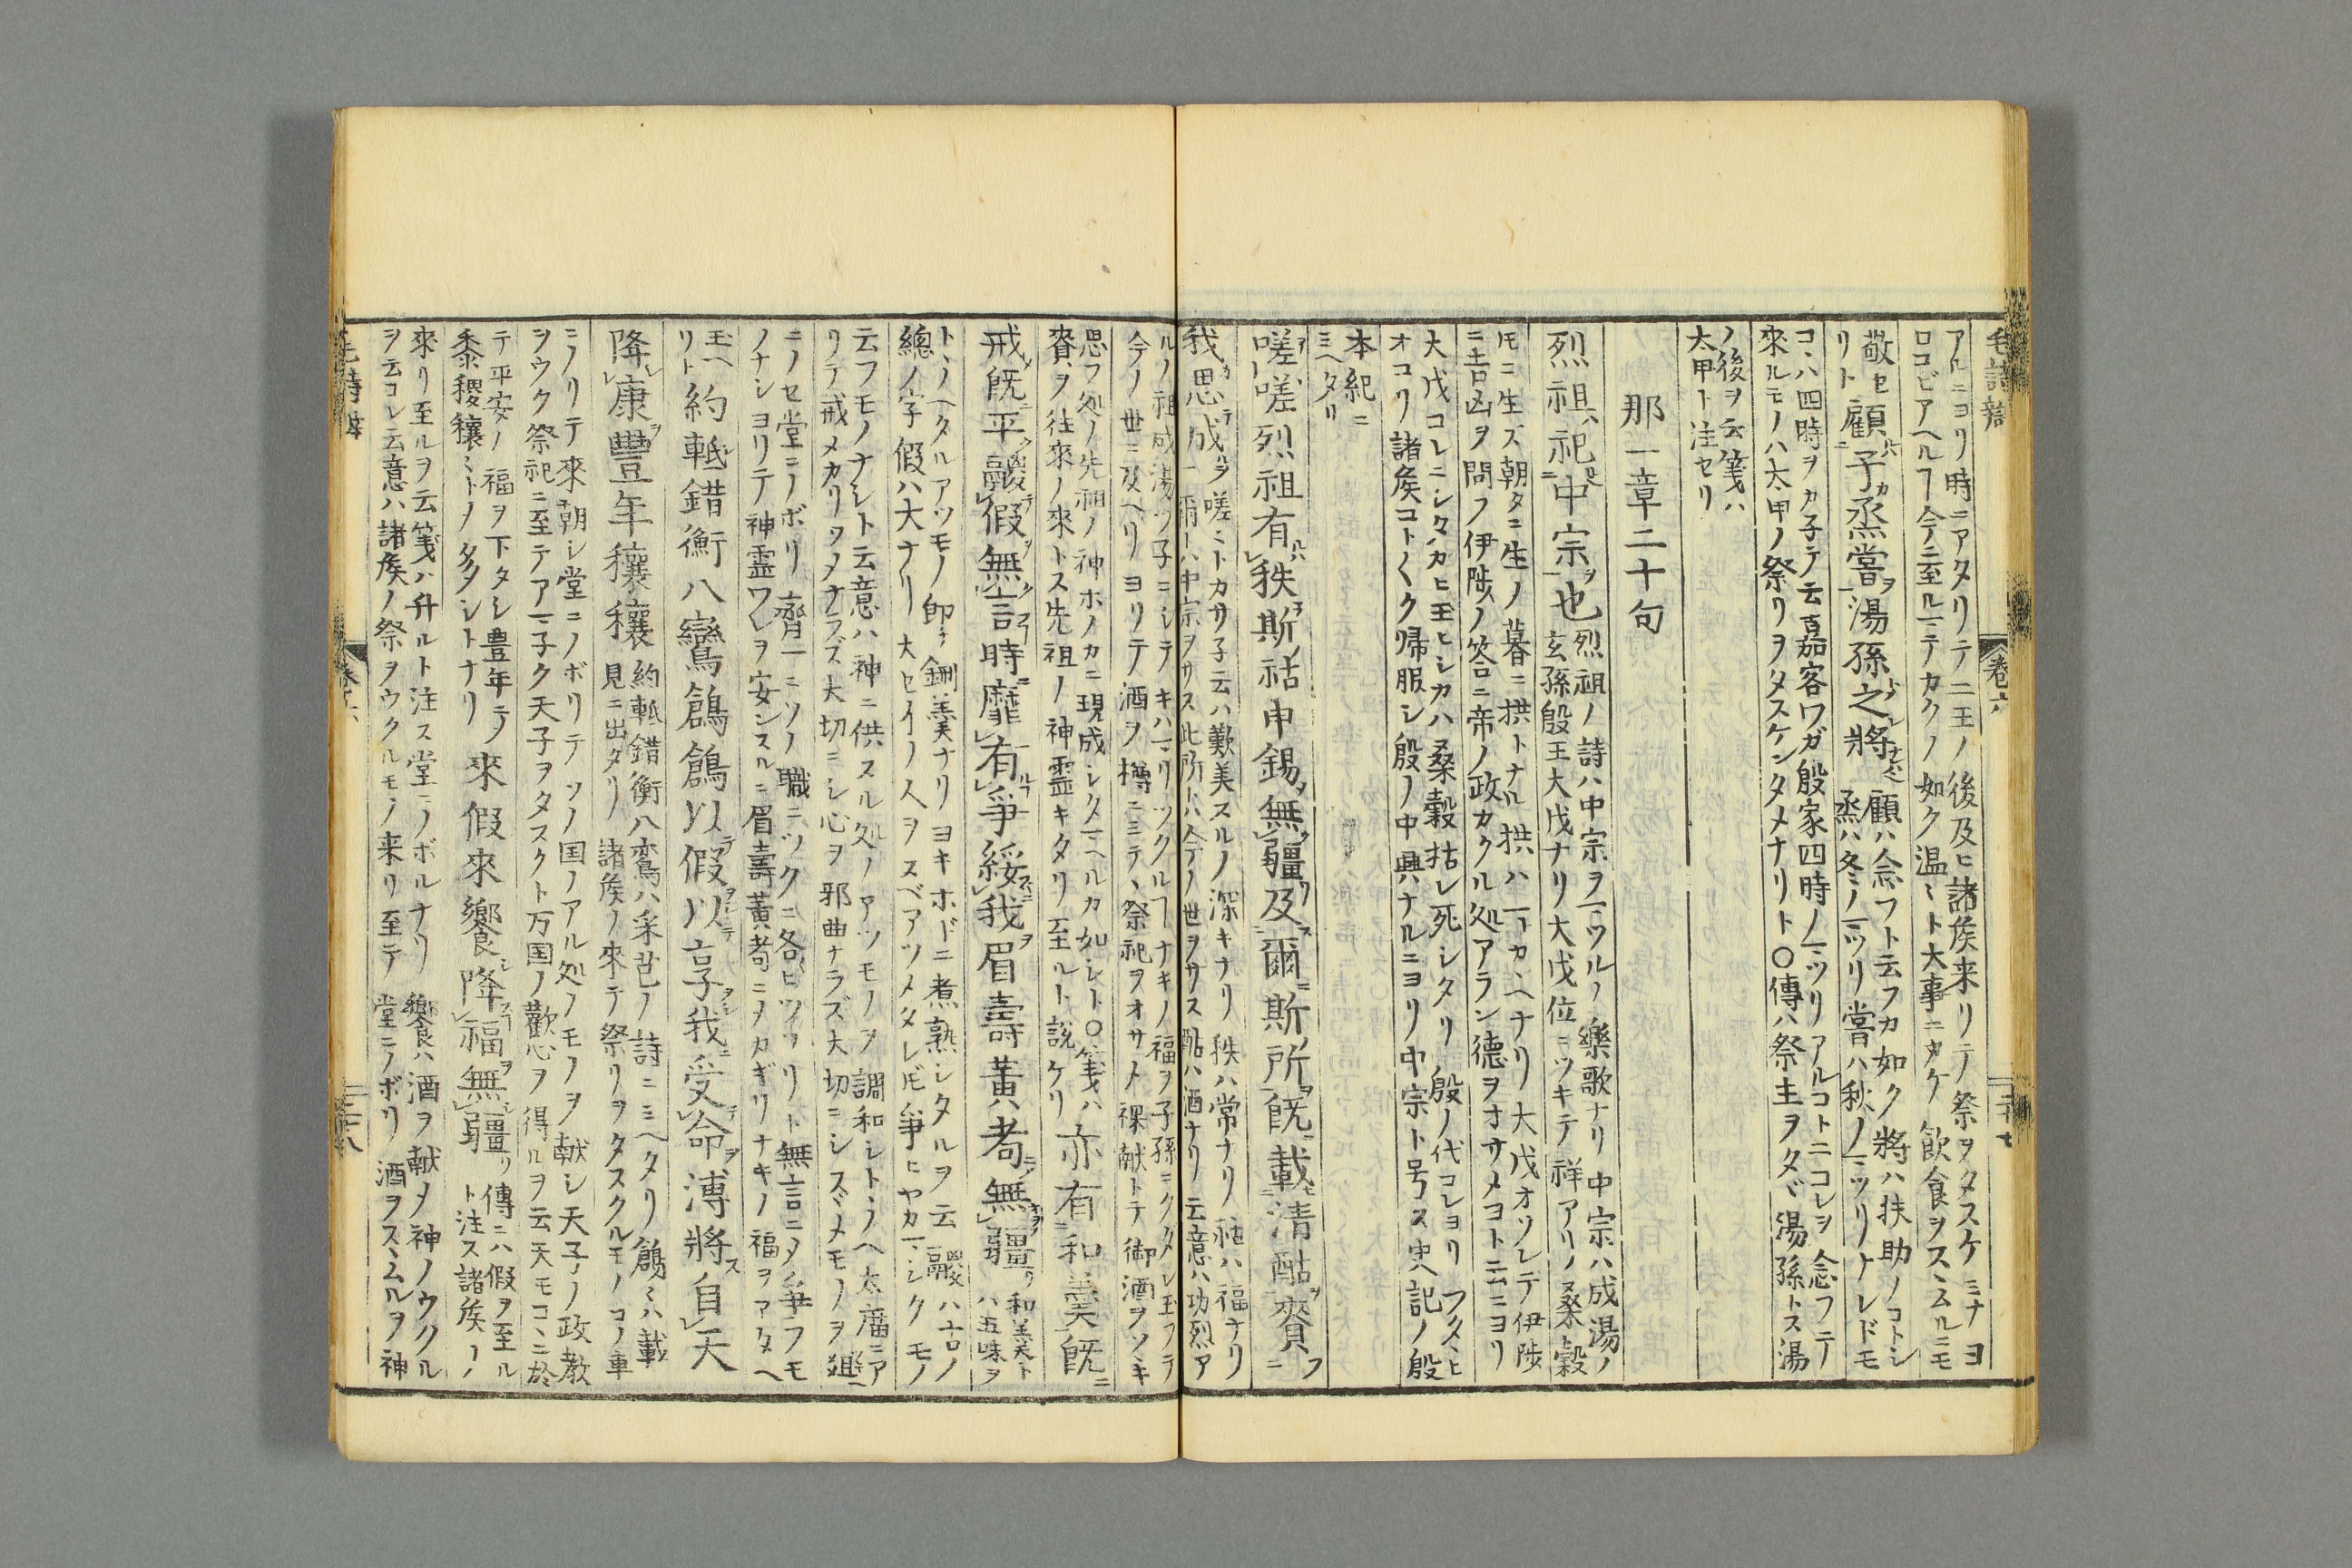 毛詩辯
アルニヨリ時ニアタリテ二王ノ後及ヒ諸矦来リテ祭ヲタスケミナヨ
ロコビアヘルヿ今ニ至ルニテカクノ如ク温〻ト大事ニカケ飲食ヲスヽムルニモ
敬セリト
顧予烝嘗湯孫之將
顧ハ念フト云フカ如ク將ハ扶助ノコトシ
烝ハ冬ノマツリ嘗ハ秋ノマツリナレドモ
コヽハ四時ヲカ子テ云嘉客ワガ殷家四時ノマツリアルコトニコレヲ念フテ
來ルモノハ太甲ノ祭リヲタスケンタメナリト○傳ハ祭主ヲタヾ湯孫トス湯
ノ後ヲ云箋ハ
太甲ト注セリ
那一章二十句
烈祖祀中宗也
烈祖ノ詩ハ中宗ヲマツルノ樂歌ナリ中宗ハ成湯ノ
玄孫殷王大戊ナリ大戊位ニツキテ祥アリノ桑穀
モニ生ズ朝タニ生ノ暮ニ拱トナル拱ハ一トカヽヘナリ大戊オソレテ伊陟
ニ吉凶ヲ問フ伊陟ノ答ニ帝ノ政カクル処アラン德ヲオサメヨト云ニヨリ
大戊コレニシタカヒ玉ヒシカハ桑穀枯レ死シタリ殷ノ代コレヨリフタヽヒ
オコリ諸矦コト〱ク帰服シ殷ノ中興ナルニヨリ中宗ト号ス史記ノ殷
本紀ニ
ミヘタリ
嗟嗟烈祖有秩斯祜申錫無疆及爾斯所既載清酤賚
我思成
嗟〻トカサ子云ハ歎美スルノ深キナリ秩ハ常ナリ祜ハ福ナリ
爾トハ中宗ヲサス此所トハ今ノ世ヲサス酤ハ酒ナリ云意ハ功烈ア
ルノ祖成湯ツ子ニシテキハマリツクルヿナキノ福ヲ子孫ニクタシ玉フテ
今ノ世ニ及ヘリヨリテ酒ヲ樽ニミテヽ祭祀ヲオサメ祼献トテ御酒ヲソヽキ
思フ処ノ先祖ノ神ホノカニ現成シタマヘルカ如シト○箋ハ
賚ヲ往來ノ來トス先祖ノ神霊キタリ至ルト説ケリ
亦有和羹既
戒既平鬷假無言時靡有爭綏我眉壽黃耇無疆
和羹ト
ハ五味ヲ
トヽノヘタルアツモノ即チ鉶羹ナリヨキホドニ煮熟シタルヲ云鬷ハ古ノ
總ノ字假ハ大ナリ大セイノ人ヲスベアツメタレ𪜈爭ヒヤカマシクモノ
云フモノナシト云意ハ神ニ供スル処ノアツモノヲ調和シトヽノヘ太廟ニア
リテ戒メカリソメナラズ大切ニシ心ヲ邪曲ナラズ大切ニシスヽメモノヲ
ニノセ堂ニノボリ齊一ニソノ職ニツクニ各ヒツソリト無言ニメ爭フモ
ノナシヨリテ神霊ワレヲ安ンスルニ眉壽黃耇ニメカギリナキノ福ヲアタヘ
玉ヘ
リト
約軝錯衡八鸞鶬鶬以假以享我受命溥將自天
降康豐年穰穰
約軝錯衡八鸞ハ采芑ノ詩ニミヘタリ鶬〻ハ載
見ニ出タリ諸矦ノ來テ祭リヲタスクルモノコノ車
ニノリテ來朝シ堂ニノボリテソノ国ノアル処ノモノヲ献シ天子ノ政教
ヲウク祭祀ニ至テアマ子ク天子ヲタスクト万国ノ歡心ヲ得ルヲ云天モコヽニ於
テ平安ノ福ヲ下タシ豊年テノ
黍稷穰〻トノ多シトナリ
來假來饗降福無疆
傳ニハ假ヲ至ル
ト注ス諸矦ノ
來リ至ルヲ云箋ハ升ルト注ス堂ニノボルナリ饗ハ酒ヲ献メ神ノウクル
ヲ云コレ云意ハ諸矦ノ祭ヲウクルモノ来リ至テ堂ニノボリ酒ヲスヽムルヲ神